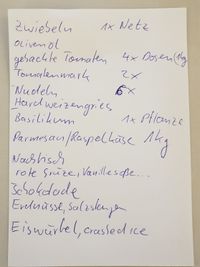 Zwiebeln 1x Netz
Olivenöl
gehackte Tomaten 4x Dosen (1kg
Tomatenmark 2x
Nudeln 6x
Hartweizengries
Basilikum 1x Pflanze
Parmesan/Raspelkäse 1kg
Nachtisch
rote Grütze, Vanillesoße...
Schokolade
Erdnüsse, Salzstangen
Eiswürfel, crashed ice